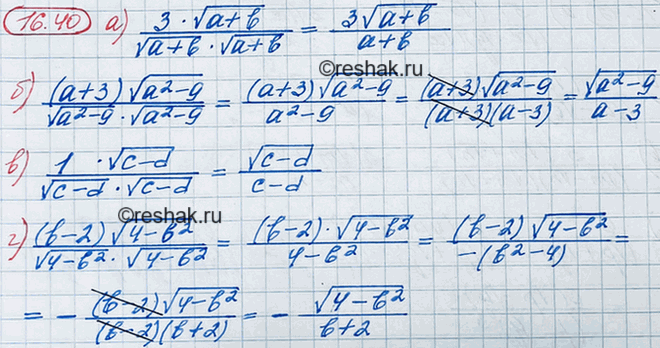 16.40 а) 3·√(a+b) / √(a+b)·√(a+b) = 3√(a+b) / (a+b)
©reshak.ru
б) (a+3)√(a²-9) / √(a²-9)·√(a²-9) = (a+3)√(a²-9) / (a²-9) = (a+3)√(a²-9) / (a+3)(a-3) = √(a²-9) / (a-3)
в) 1·√(c-d) / √(c-d)·√(c-d) = √(c-d) / (c-d)
©reshak.ru
г) (b-2)√(4-b²) / √(4-b²)·√(4-b²) = (b-2)·√(4-b²) / (4-b²) = (b-2)√(4-b²) / -(b²-4) =
= - (b-2)√(4-b²) / (b-2)(b+2) = - √(4-b²) / (b+2)